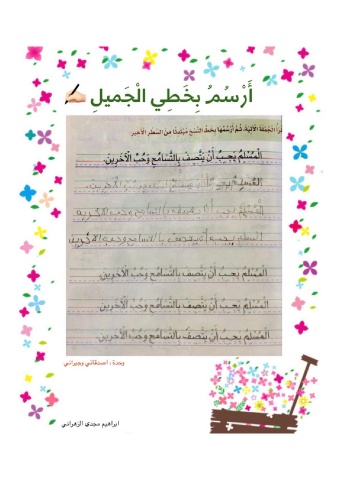 أَرْسُمُ بِخَطِي الْجَميلِ
أقرأُ الجُملةَ الآتيةَ، ثُمَّ أرْسُمُها بخطِّ النَّسْخِ مُبْتَدِئًا مِنَ السَّطرِ الأخيرِ.
الْمُسْلِمُ يَجِبُ أَنْ يَتَّصِفَ بِالتَّسَامُحِ وَحُبِّ الْآخَرِينَ.
المسلم يجب أن
المسلم يجب أن يتصف بالتسامح وحب الآخرين
المسلم يجب أن يتصف بالتسامح وحب الآخرين
الْمُسْلِمُ يَجِبُ أَنْ يَتَّصِفَ بِالتَّسَامُحِ وَحُبِّ الْآخَرِينَ.
الْمُسْلِمُ يَجِبُ أَنْ يَتَّصِفَ بِالتَّسَامُحِ وَحُبِّ الْآخَرِينَ.
الْمُسْلِمُ يَجِبُ أَنْ يَتَّصِفَ بِالتَّسَامُحِ وَحُبِّ الْآخَرِينَ.
وحدة : اصدقائي وجيراني
ابراهيم مجدي الزهراني